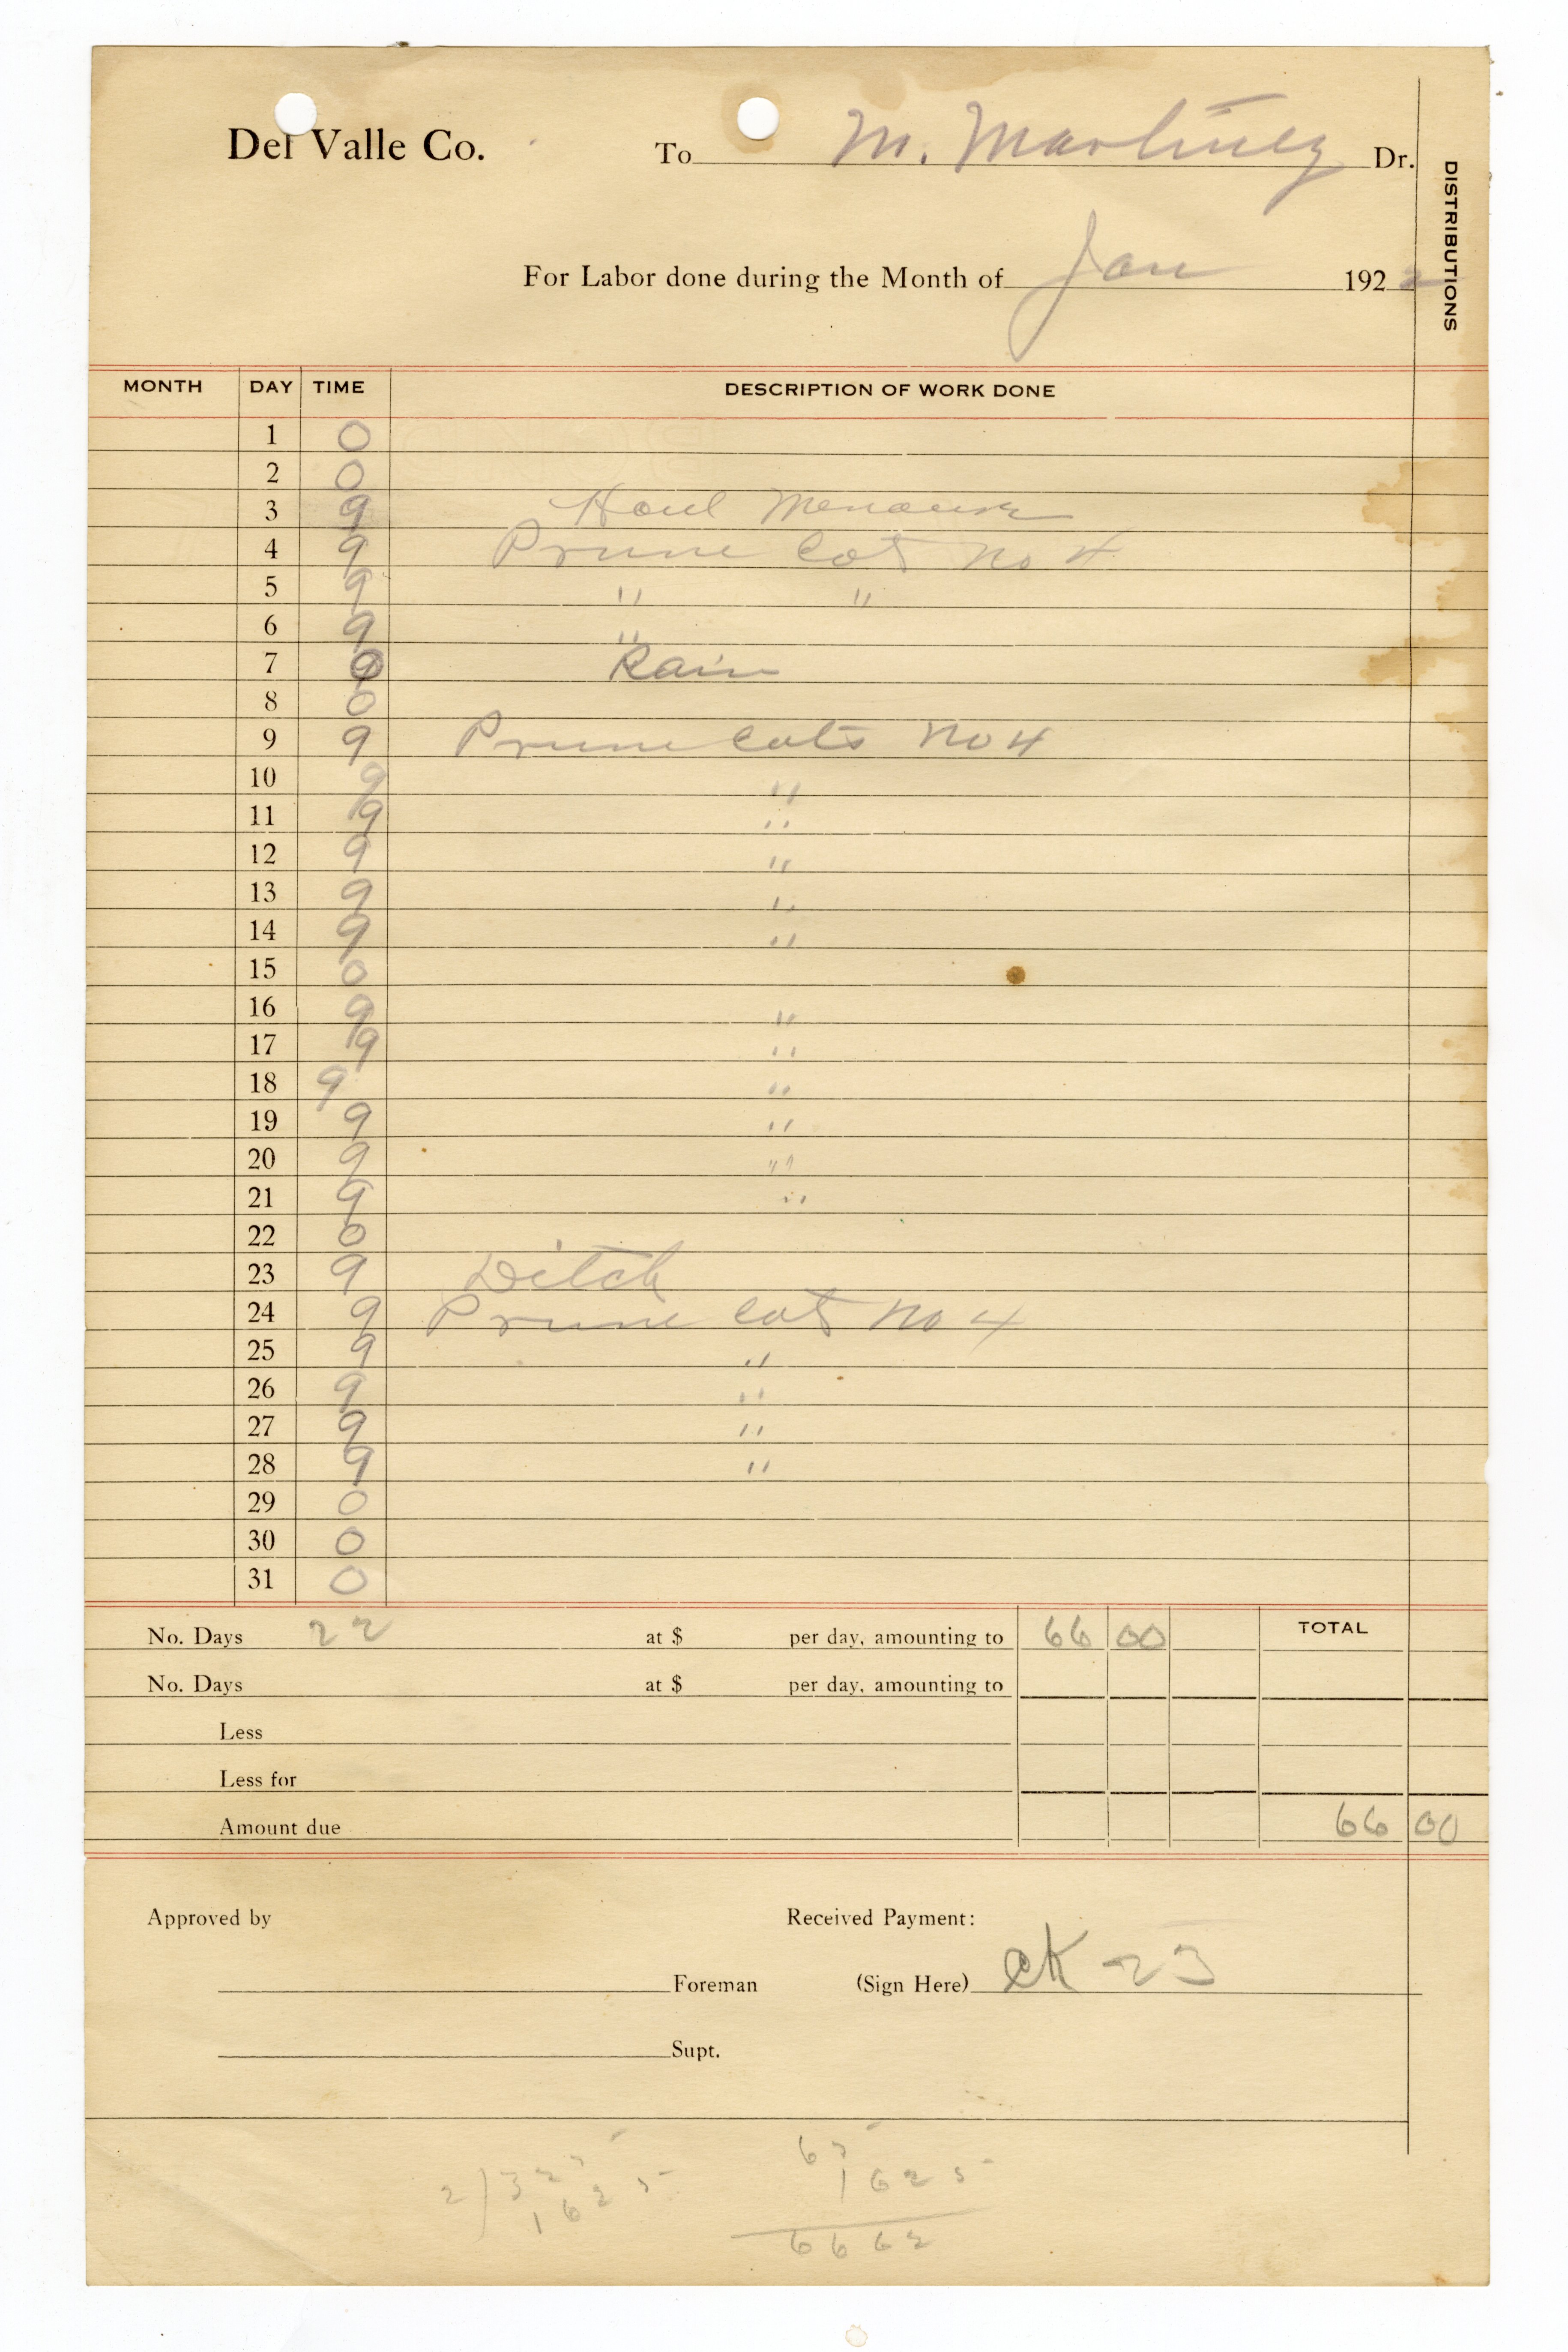 Del Valle Co. To M. Martinez Dr.
DISTRIBUTIONS
For Labor done during the Month of Jan 1922
MONTH DAY TIME DESCRIPTION OF WORK DONE
1 0
2 0
3 9 Haul
4 9 Prune Cot No 4
5 9 " "
6 9 "
7 0 Rain
8 0
9 9 Prune Cots No 4
10 9 "
11 9 "
12 9 "
13 9 "
14 9 "
15 0
16 9 "
17 9 "
18 9 "
19 9 "
20 9 "
21 9 "
22 0
23 9 Ditch
24 9 Prune Cot No 4
25 9 "
26 9 "
27 9 "
28 9 "
29 0
30 0
31 0
No. Days 22 at $ per day, amounting to 66 00 TOTAL
No. Days at $ per day, amounting to
Less
Less for
Amount due 66 00
Approved by Received Payment:
Foreman (Sign Here) CK 23
Supt.
2 ) 325
1625
1625
6662